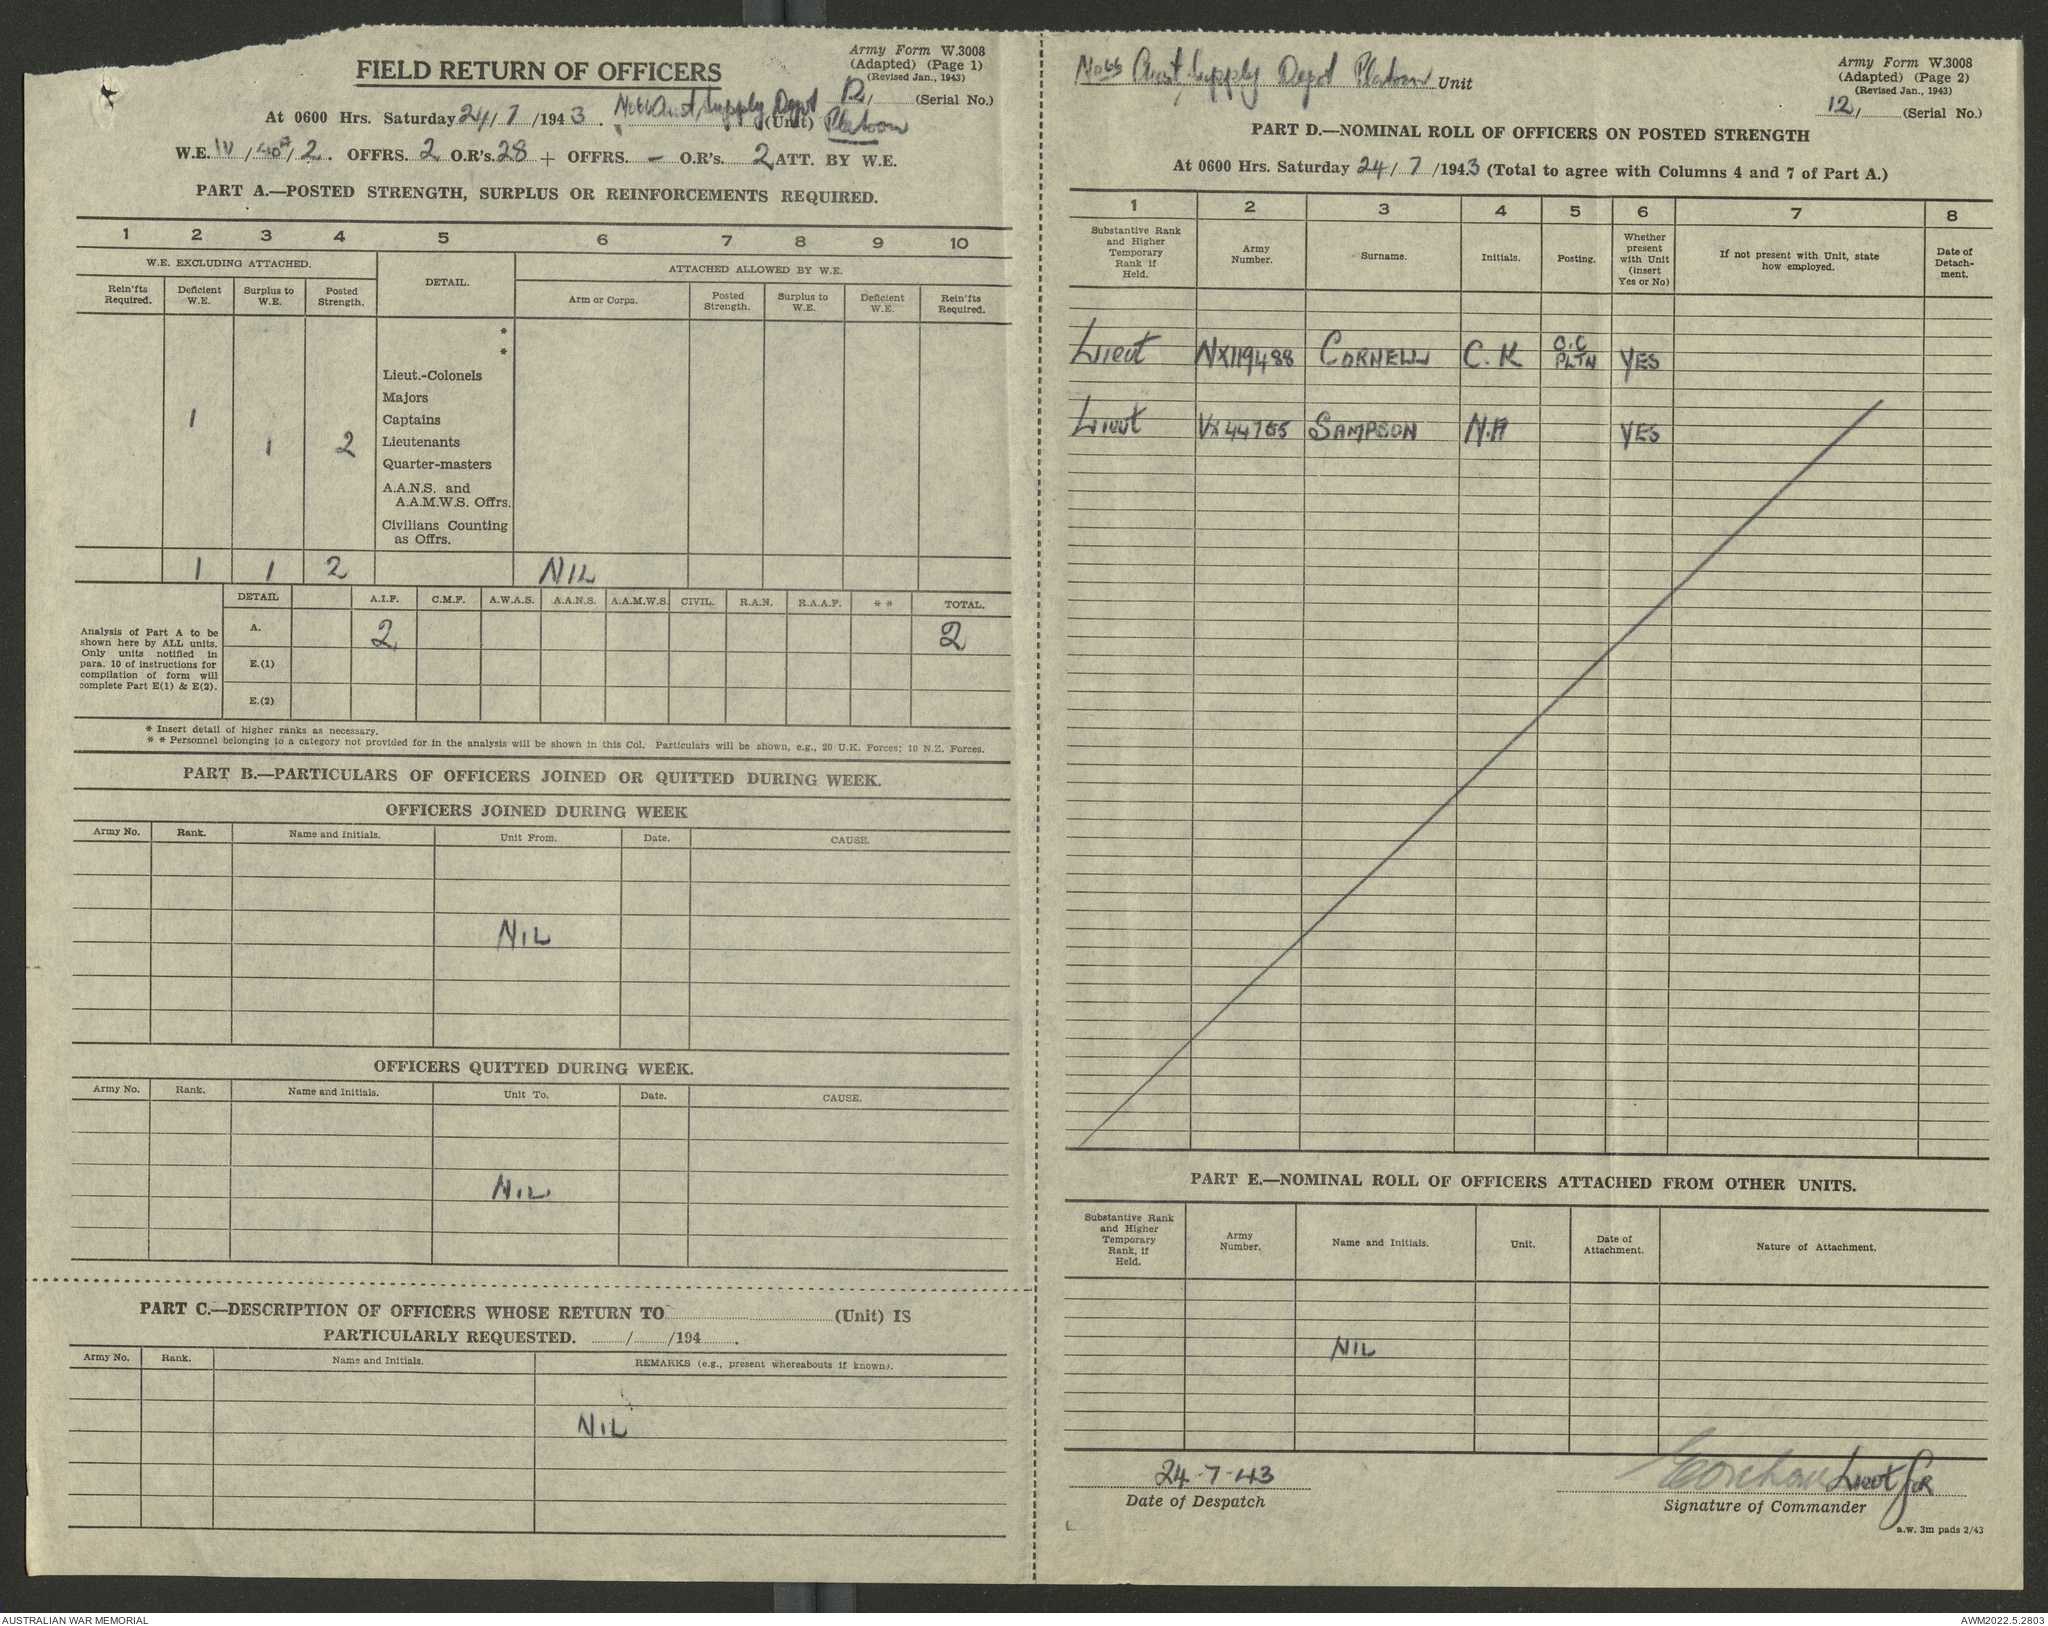 Army Form W.3008
(Adapted) (Page 1)
(Revised Jan., 1943)
FIELD RETURN OF OFFICERS
12/ (Serial No.)
At 0600 Hrs. Saturday 24/7/1943. No 66 Aust Supply Depot (Unit) Platoon
W.E. IV / / 2. OFFRS. 2 O.R's. 28 + OFFRS. – O.R's. 2 ATT. BY W.E.
PART A.—POSTED STRENGTH, SURPLUS OR REINFORCEMENTS REQUIRED.
1 2 3 4 5 6 7 8 9 10
W.E. EXCLUDING ATTACHED. DETAIL. ATTACHED ALLOWED BY W.E.
Rein'fts Required. Deficient W.E. Surplus to W.E. Posted Strength. Arm or Corps. Posted Strength. Surplus to W.E. Deficient W.E. Rein'fts Required.
*
*
Lieut.-Colonels
Majors
1 Captains
1 2 Lieutenants
Quarter-masters
A.A.N.S. and
A.A.M.W.S. Offrs.
Civilians Counting
as Offrs.
1 1 2 NIL
DETAIL A.I.F. C.M.F. A.W.A.S. A.A.N.S. A.A.M.W.S. CIVIL. R.A.N. R.A.A.F. * * TOTAL.
Analysis of Part A to be
shown here by ALL units.
Only units notified in
para. 10 of instructions for
compilation of form will
complete Part E(1) & E(2).
A. 2 2
E.(1)
E.(2)
* Insert detail of higher ranks as necessary.
* * Personnel belonging to a category not provided for in the analysis will be shown in this Col. Particulars will be shown, e.g., 20 U.K. Forces; 10 N.Z. Forces.
PART B.—PARTICULARS OF OFFICERS JOINED OR QUITTED DURING WEEK.
OFFICERS JOINED DURING WEEK
Army No. Rank. Name and Initials. Unit From. Date. CAUSE.
NIL
OFFICERS QUITTED DURING WEEK.
Army No. Rank. Name and Initials. Unit To. Date. CAUSE.
NIL
PART C.—DESCRIPTION OF OFFICERS WHOSE RETURN TO (Unit) IS
PARTICULARLY REQUESTED. / /194 .
Army No. Rank. Name and Initials. REMARKS (e.g., present whereabouts if known).
NIL
No 66 Aust Supply Depot Platoon Unit
Army Form W.3008
(Adapted) (Page 2)
(Revised Jan., 1943)
12/ (Serial No.)
PART D.—NOMINAL ROLL OF OFFICERS ON POSTED STRENGTH
At 0600 Hrs. Saturday 24/7/1943 (Total to agree with Columns 4 and 7 of Part A.)
1 2 3 4 5 6 7 8
Substantive Rank and Higher Temporary Rank if Held. Army Number. Surname. Initials. Posting. Whether present with Unit (insert Yes or No) If not present with Unit, state how employed. Date of Detachment.
Lieut NX119488 CORNELL C.K O.C PLTN YES
Lieut SAMPSON N.A YES
PART E.—NOMINAL ROLL OF OFFICERS ATTACHED FROM OTHER UNITS.
Substantive Rank and Higher Temporary Rank, if Held. Army Number. Name and Initials. Unit. Date of Attachment. Nature of Attachment.
NIL
24-7-43 Lieut for
Date of Despatch Signature of Commander
a.w. 3m pads 2/43
AUSTRALIAN WAR MEMORIAL AWM2022.5.2803